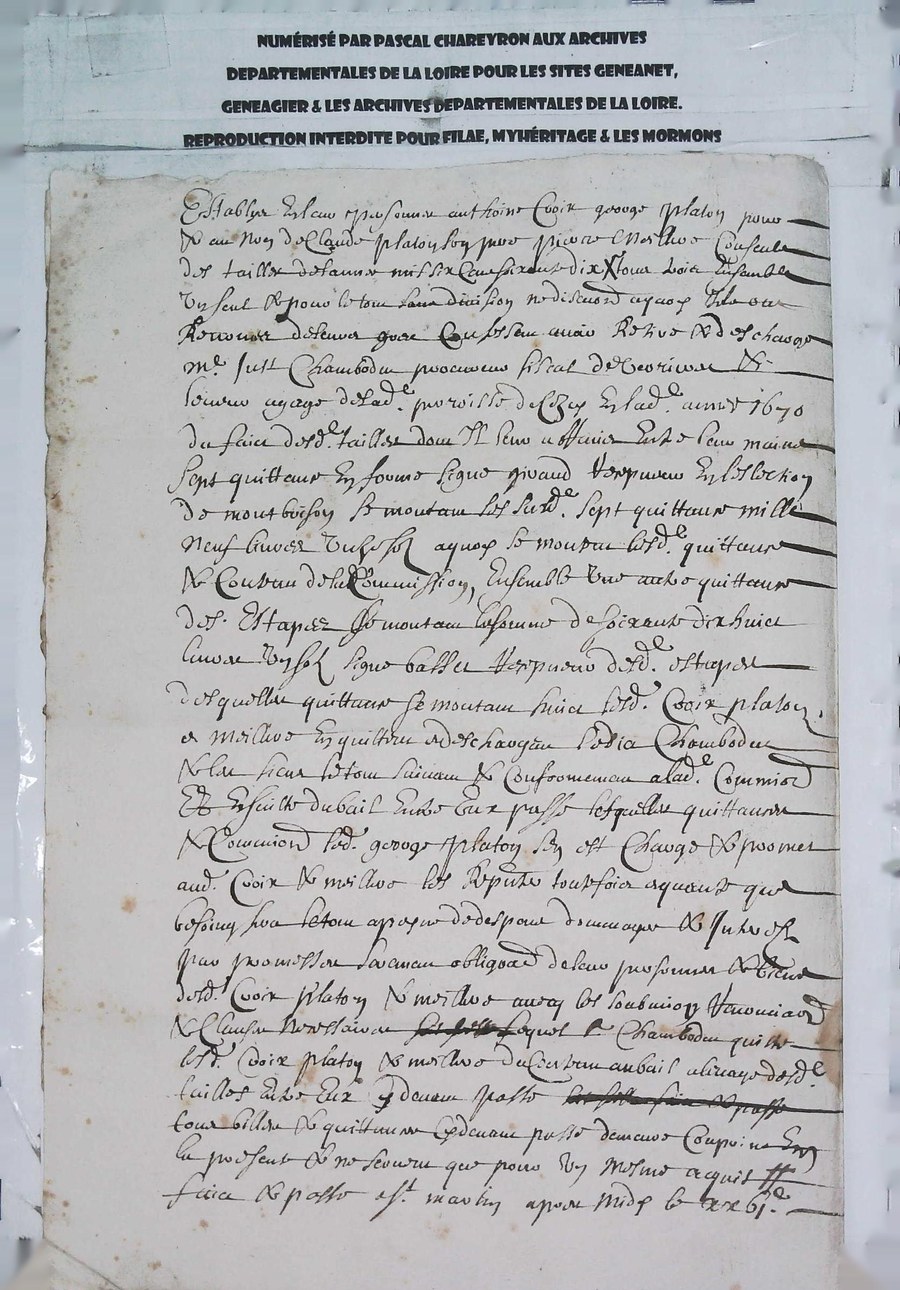 NUMÉRISÉ PAR PASCAL CHAREYRON AUX ARCHIVES
DEPARTEMENTALES DE LA LOIRE POUR LES SITES GENEANET,
GENEAGIER & LES ARCHIVES DEPARTEMENTALES DE LA LOIRE.
REPRODUCTION INTERDITE POUR FILAE, MYHÉRITAGE & LES MORMONS
Establys en leur personne anthoine Coix george platon pour
& au nom de Claude platon son pere pierre meilhve Consulz
des tailles de lannee mil six Cens soixante dix tous trois ensemble
un seul & pour le tout sans division ne discution
Renoncer de leur gre Confessent avoir Receu & deschargé
me Just Chambodu procureur fiscal de &
leveur a gage de lad. parroisse de en lad. annee 1670
du faict desd. tailles dont Il leur a entre leur mains
sept quittances en forme signe giraud Recepveur en leslection
de montbrison se montant les susd. sept quittances mille
neuf livres un sol a quoy se montent lesd. quittances
& Contenu de la Commission, Ensemble une autre quittance
des Estapes se montant la somme de soixante dix huict
livres un sol signe basset Recepveur desd. estapes
desquelles quittances se montant lesd. Coix platon
et meilhve en quittent et deschargent ledict Chambodu
& les siens le tout suivant & Conformement a lad. Commiss
Et Ensuitte du bail Entre Eux passe lesquelles quittances
& Commiss led. george platon sen est Charge & promet
aud. Coix & meilhve les toutesfois et quantes que
besoing sera le tout a peyne de despans dommages & Interest
par promesse serment obligaon de leur personnes & biens
desd. Coix platon & meilhve avecq les soubmission Renonciaon
& Clauses necessaires lequel Chambodu quitte
lesd. Coix platon & meilhve du Contenu au bail a desd.
tailles Entre Eux Cy devant passe
tous billes & quittances Cy devant passe demeure Comprins En
la presente & ne servent que pour un mesme acquit
faict & passe a st martin apres midy le xxbj.